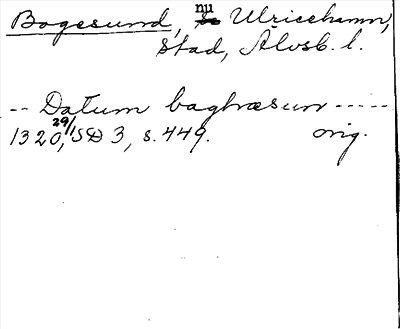 Bogesund, nu Ulricehamn,
stad, Älvsb. l.
-- Datum baghæsun -----
1320 29/1, SD 3, s. 449. orig.